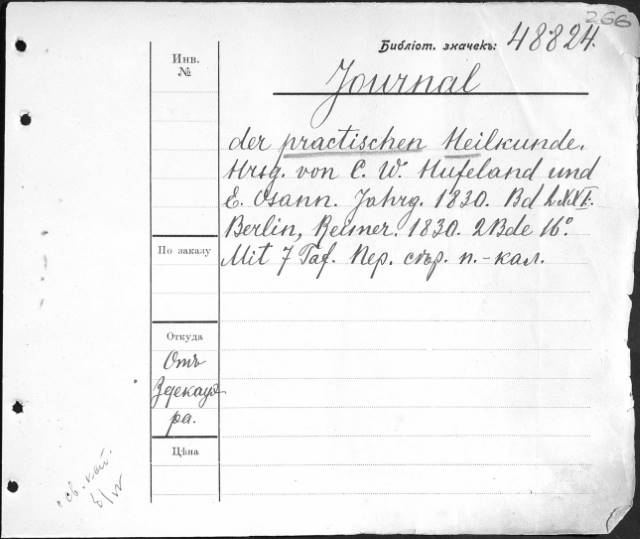 266
Библіот. значекъ: 48824.
Инв.
№
Journal
der practischen Heilkunde.
Hrsg. von C. W. Hufeland und
E. Osann. Jahrg. 1830. Bd LXXI.
Berlin, Reimer. 1830. 2 Bde 16°.
По заказу
Mit 7 Taf. Пер. стр. п.-кал.
Откуда
Отъ
Здекауэ
ра.
Цѣна